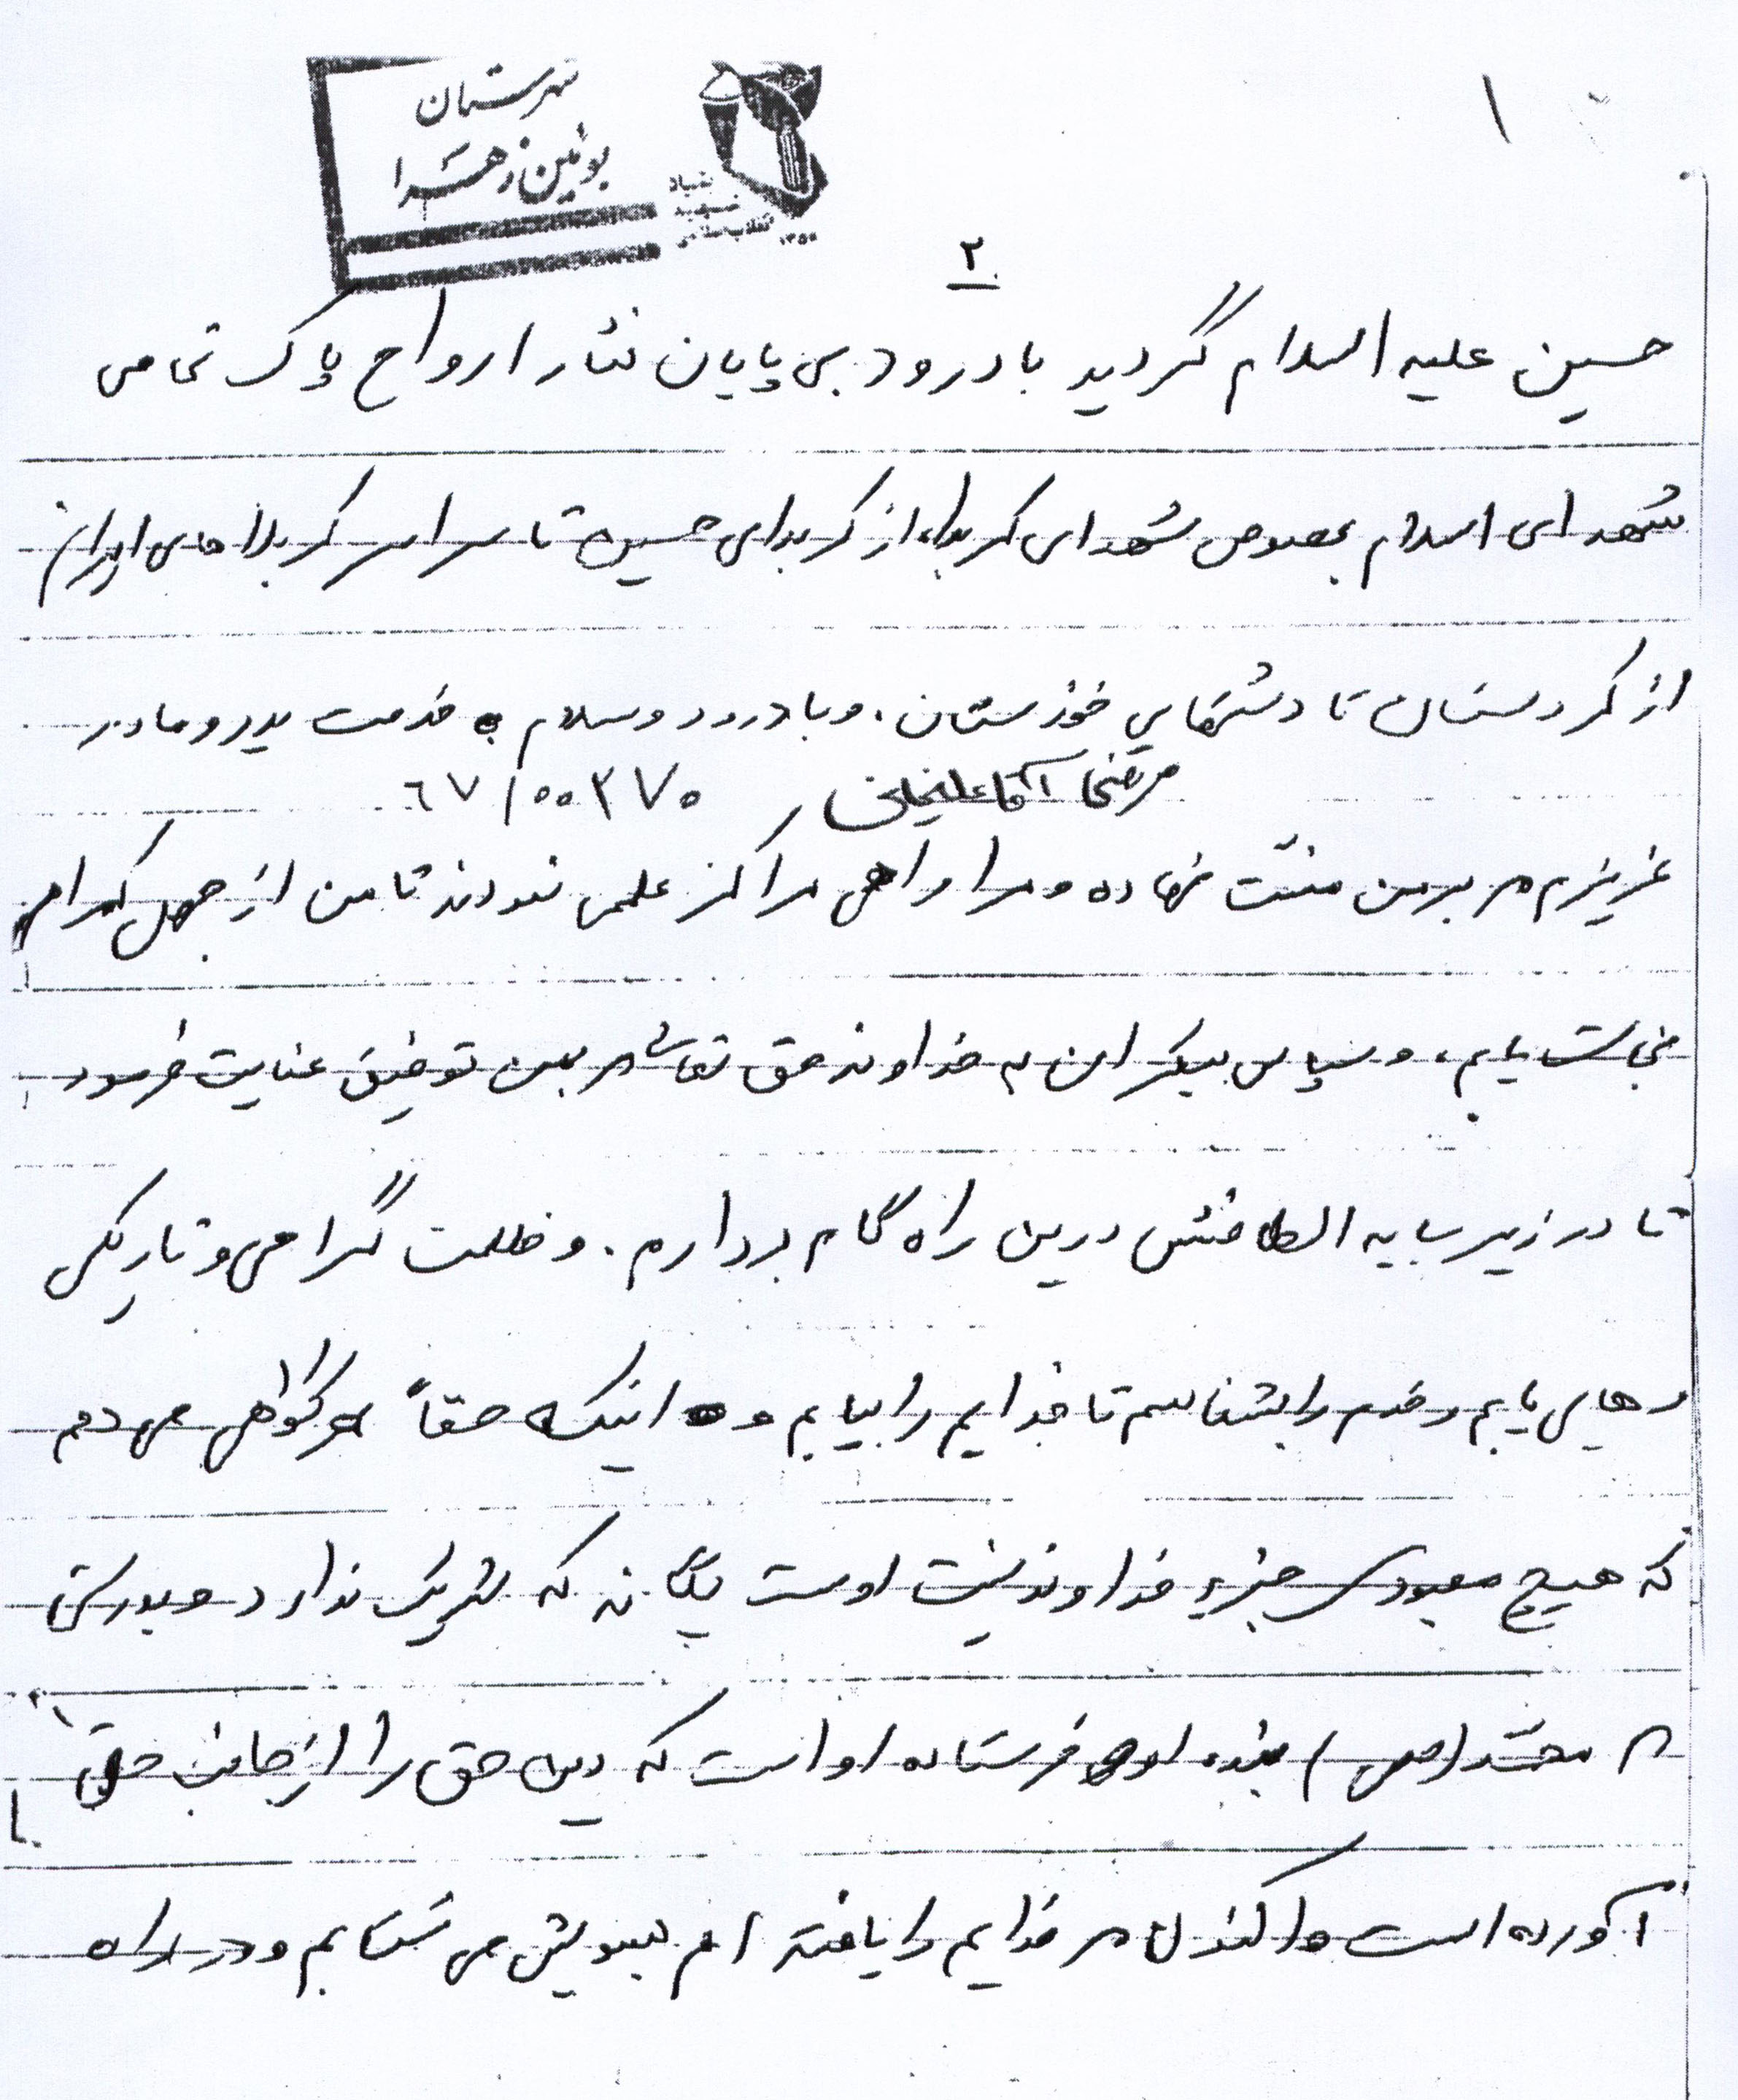 ۱
شهرستان
بوئین زهرا
بنیاد
شهید
انقلاب اسلامی
۱۳۵۸
۲
حسین علیه السلام گردید با درود بی پایان نثار ارواح پاک تمامی
شهدای اسلام بخصوص شهدای کربلا، از کربلای حسین تا سراسر کربلاهای ایران
از کردستان تا دشتهای خوزستان. و با درود و سلام به خدمت پدر و مادر
مرتضی آقاعلیخانی ۶۷/۰۰۳۷۰
عزیزم که بر من منت نهاده و مرا راهی مراکز علمی نمودند تا من از جهل گمراهی
نجات یابم، و سپاس بیکران به خداوند حق تعالی که بمن توفیق عنایت فرمود
تا در زیر سایه الطافش درین راه گام بردارم. و ظلمت گمراهی و تاریکی
رهایی یابم و خودم را بشناسم تا خدایم را بیابم و اینکه حقاً گواهی می دهم
که هیچ معبودی جزء خداوند نیست اوست یگانه که شریک ندارد و بدرستی
که محمد (ص) بنده او و فرستاده او است که دین حق را از جانب حق
آورده است و اکنون که خدایم را یافته ام بسویش می شتابم و در راه